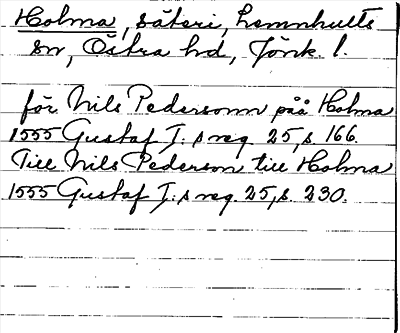 Holma, säteri, Lemnhults
sn, Östra hd, Jönk. l.
för Nils Pedersonn påå Holma
1555 Gustaf I:s reg. 25, s. 166.
Till Nils Pederson till Holma
1555 Gustaf I:s reg. 25, s. 230.